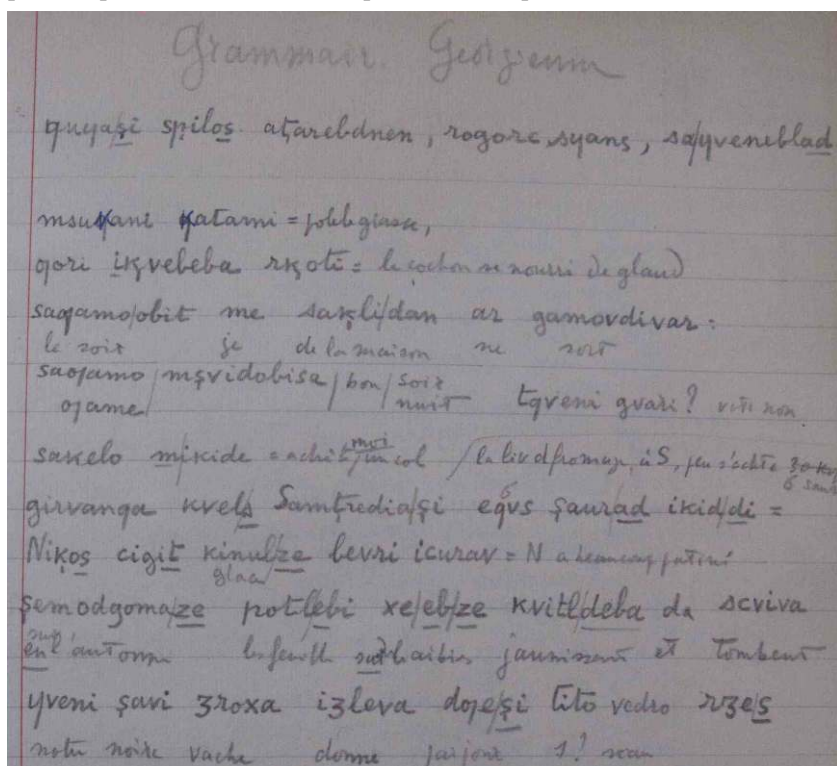 Grammair. Georgienn
quyaşi spilos aţarebdnen, rogorc syans, sa/yveneblad
msuқani қatami = poule grasse,
gori iķvebeba rķoti = le cochon se nourri de gland
sagamo/obit me saķli/dan ar gamovdivar:
le soir je de la maison ne sort
saojamo/mşvidobisa/bon/soir
ojame nuit tqveni gvari? votre nom
saкelo miкide = achète/moi/un col /la liv d fromage, à S,
girvanga кvels Samţredia/şi eqvs şaurad iкid/di =
6
Niķos cigit кinulze bevri icurav = N a beaucoup patiné
glac
şemodgoma/ze potlebi xe/eb/ze кvitldeba da scviva
sur
en l'automn les feuill sur jaunissent et tombent
yveni şavi ʒroxa iʒleva doje/şi tito vedro rʒe/s
notre noire vache donne par jour 1